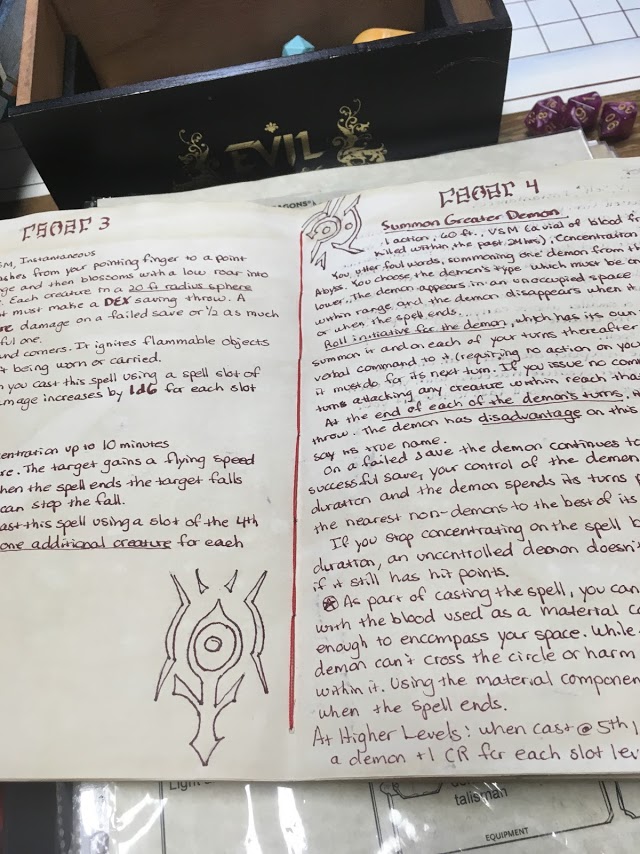 EVIL
AGONS®
3
SM, Instantaneous
ashes from your pointing finger to a point
nge and then blossoms with a low roar into
. Each creature in a 20 ft radius sphere
t must make a DEX saving throw. A
re damage on a failed save or 1/2 as much
ful one.
und corners. It ignites flammable objects
t being worn or carried.
n you cast this spell using a spell slot of
amage increases by 1d6 for each slot
centration up to 10 minutes
re. The target gains a flying speed
hen the spell ends the target falls
can stop the fall.
ast this spell using a slot of the 4th
one additional creature for each
4
Summon Greater Demon
1 action, 60 ft., VSM (a vial of blood f
killed within the past 24hrs), Concentration
You utter foul words, summoning one demon from th
Abyss. You choose the demon's type which must be on
lower. The demon appears in an unoccupied space
within range and the demon disappears when it
or when the spell ends.
Roll initiative for the demon, which has its own
summon it and on each of your turns thereafter
verbal command to it (requiring no action on you
it must do for its next turn. If you issue no com
turns attacking any creature within reach tha
At the end of each of the demon's turns,
throw. The demon has disadvantage on this
say its true name.
On a failed save the demon continues to
successful save, your control of the demon
duration and the demon spends its turns
the nearest non-demons to the best of its
If you stop concentrating on the spell b
duration, an uncontrolled demon doesn'
if it still has hit points.
As part of casting the spell, you can
with the blood used as a material co
enough to encompass your space. While
demon can't cross the circle or harm
within it. Using the material componen
when the spell ends.
At Higher Levels: when cast @ 5th l
a demon +1 CR for each slot lev
Light
talisman
EQUIPMENT